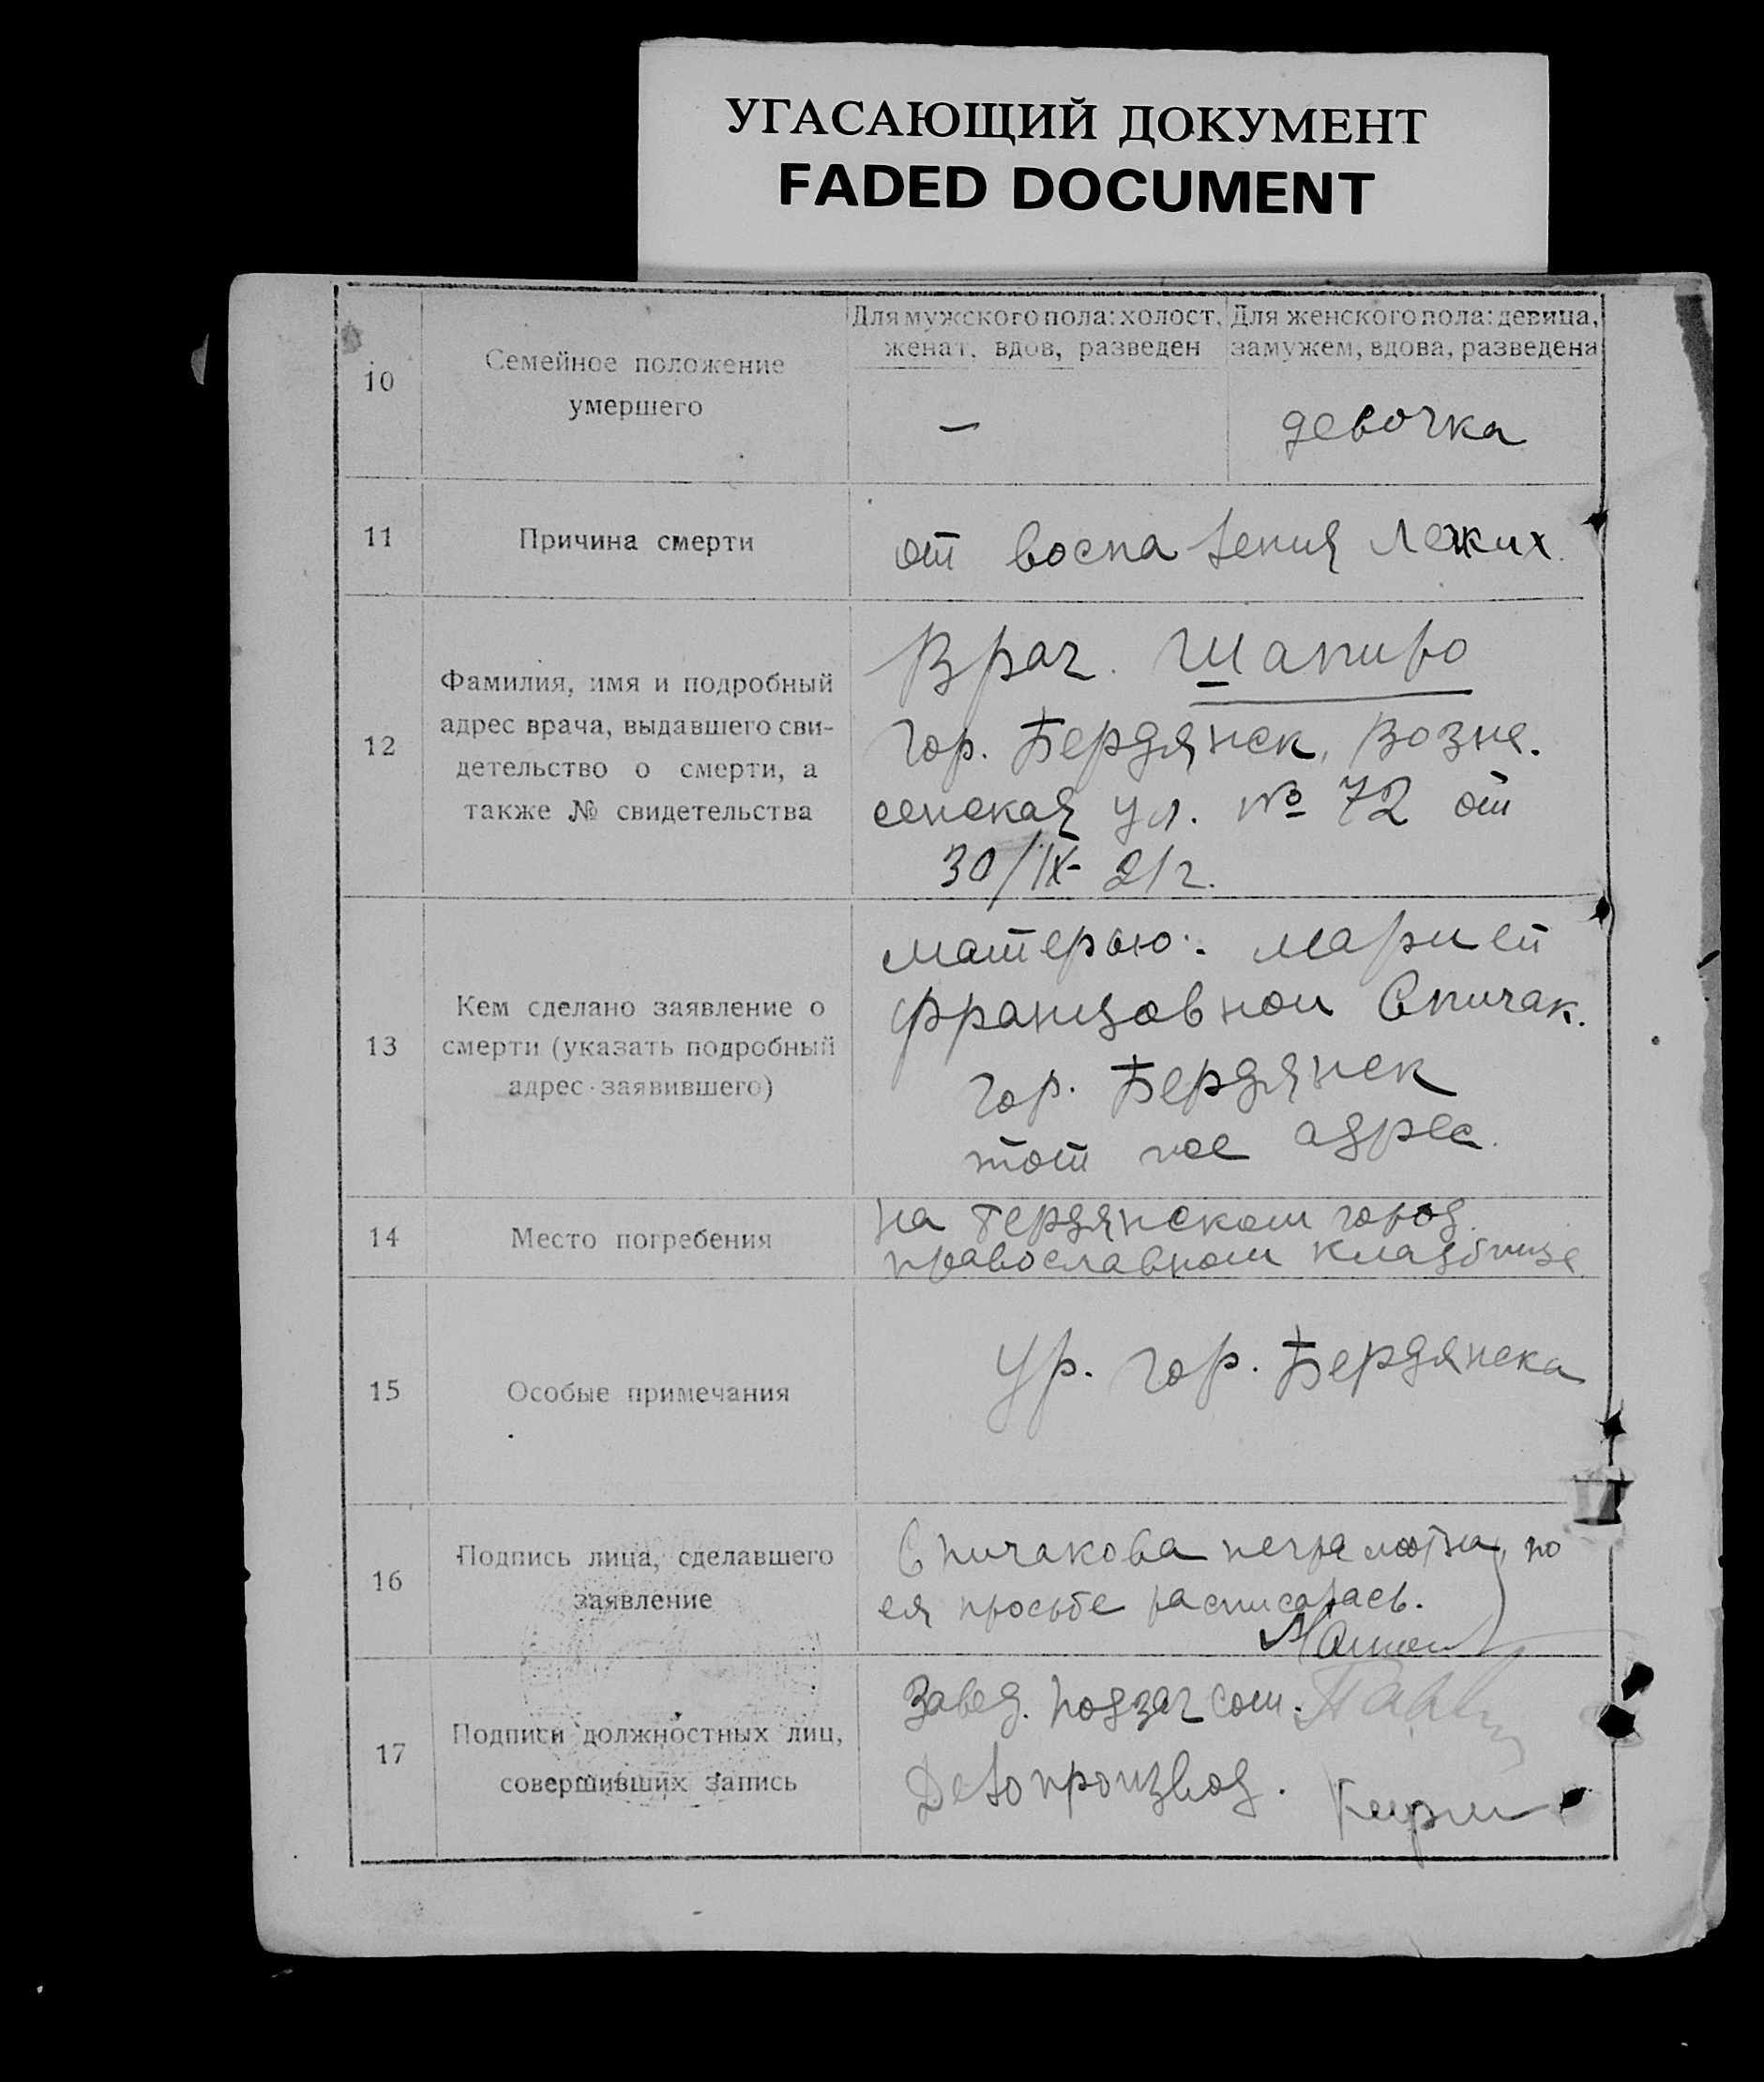 УГАСАЮЩИЙ ДОКУМЕНТ
FADED DOCUMENT
10
Семейное положение
умершего
Для мужского пола: холост,
женат, вдов, разведен
Для женского пола: девица,
замужем, вдова, разведена
—
девочка
11
Причина смерти
от воспаления легких
12
Фамилия, имя и подробный
адрес врача, выдавшего сви-
детельство о смерти, а
также № свидетельства
Врач. Шапиро
гор. Бердянск, Возне.
сенская ул. № 72 от
30/IX- 21 г.
13
Кем сделано заявление о
смерти (указать подробный
адрес заявившего)
матерью: марией
францовной Спичак.
гор. Бердянск
тот же адрес.
14
Место погребения
на бердянском город.
православном кладбище
15
Особые примечания
Ур. гор. Бердянска
16
Подпись лица, сделавшего
заявление
Спичакова неграмотна, по
ея просьбе расписалась.
17
Подписи должностных лиц,
совершивших запись
Завед. подзагсом.
Делопроизвод.